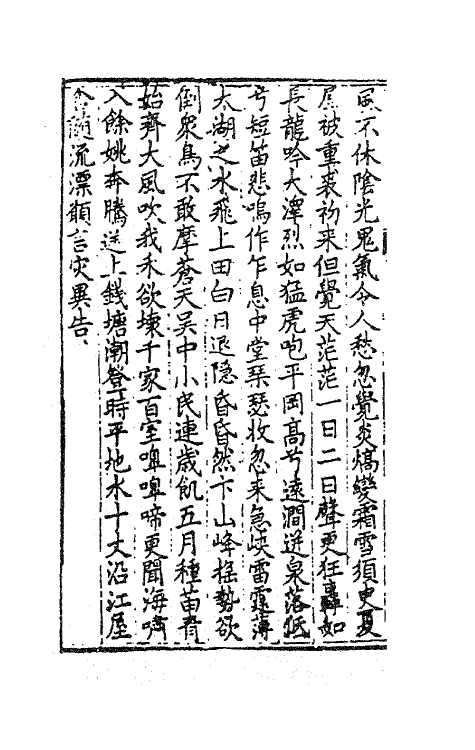 風不休陰光鬼氣令人愁忽覺炎熇變霜雪須臾夏
屋被重裘初来但覺天茫茫一日二日聲更狂轟如
長龍吟大澤烈如猛虎咆平岡高兮遠澗迸泉落低
兮短笛悲鳴作乍息中堂琴瑟收忽来急峽雷霆薄
太湖之水飛上田白日退隐昏昏然卞山峰揺勢欲
倒衆鳥不敢摩蒼天吴中小民連歲飢五月種苗青
始齊大風吹我禾欲壊千家百室啤啤啼更聞海嘯
入餘姚奔騰送上錢塘潮登時平地水十丈沿江屋
舍随流漂願言灾異告